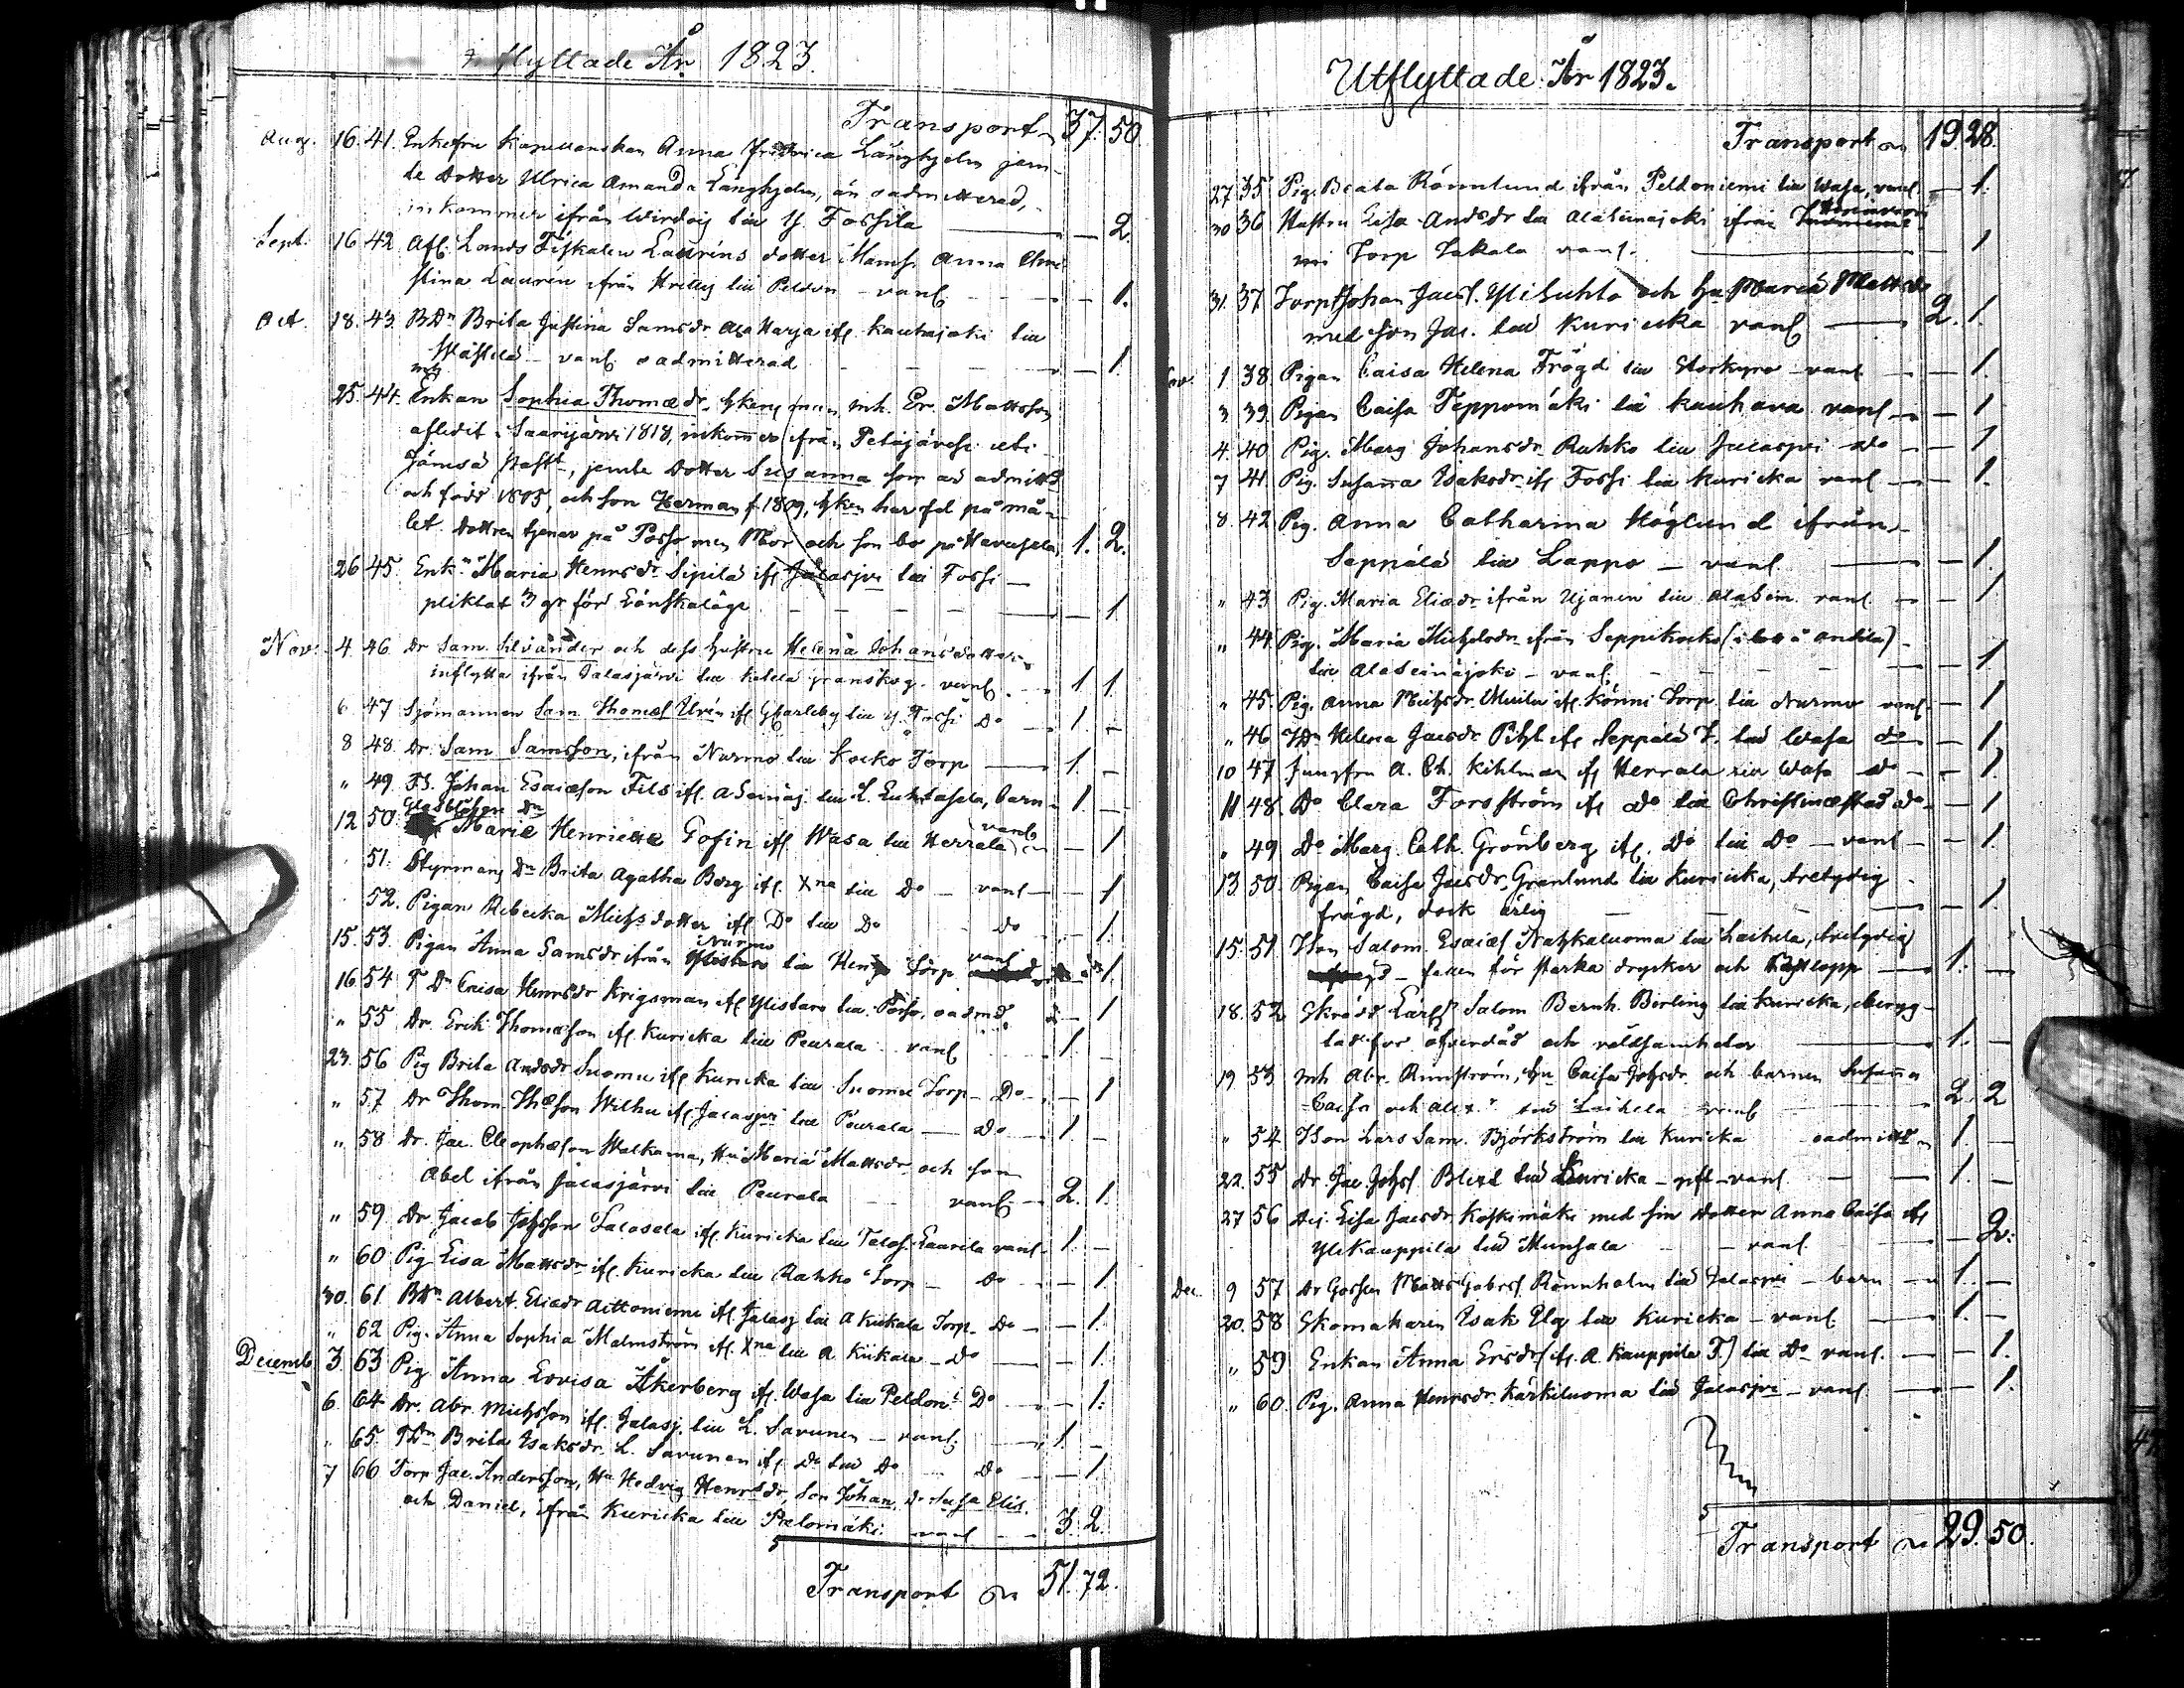 flyttade År 1823.
Transport 37. 50
Aug. 16. 41. Enkefru Kapellanskan Anna Fredrica Långhjelm jem-
te dotter Ulrica Amanda Långhjelm, än oadmitterad,
inkommer ifrån Wirdois till Y. Fossila — 2.
Sept. 16 42 Afl. Lands Fiskalen Lauréns dotter Mams. Anna Chri
stina Laurén ifrån till Peldon - vanl - 1.
Oct. 18. 43. BDr Brita Justina Samsdr Ala Harja ifl. Kauhajoki till
vanl. oadmitterad - 1.
25. 44. Enkan Sophia Thomædr, hkens man Er. Mattsson
afledit i Saarijärvi 1818, inkommer ifrån Petäjävesi uti
Jämsä, jemte dotter Susanna som är admitt
och född 1805, och son Herman f. 1809, hken har fel på må-
let. Dottren tjenar på Posso men Mor och son bo på 1. 2.
26 45. Enk. Maria Henrsdr Sipilä ifl Jalasjvi till Fossi —
pliktat 3 gr för Lönskaläge - 1
Nov. 4 46 Dr Sam. Silvander och dess hustru Helena Johansdotter
inflytta ifrån Jalasjärvi till vanl. 1 1.
6 47 Sjömannen Sam Thomas Urén ifl Gbarleby till Y. Fossi Do 1. -
8 48. Dr. Sam Samsson, ifrån Nurmo till Kocko Torp — 1. -
" 49. FS. Johan Esaiæson Fils ifl. A Seinäj. till L. barn - 1 -
12 50. Maria Henrietta Gofin ifl Wasa till Herrala vanl - 1
51. Styrmans Dr Brita Agatha Berg ifl. Xna till Do - vanl - 1
52. Pigan Rebecka Michsdotter ifl Do till Do - Do - 1.
15. 53. Pigan Anna Samsdr ifrån Nurmo till Torp vanl 1.
16. 54 T Dr Caisa Henrsdr Krigsman ifl Ylistaro till Posso, oadmd - 1
" 55 Dr. Erik Thomæson ifl Kuricka till Peurala - vanl 1. -
23. 56 Pig Brita Andsdr Suomu ifl Kuricka till Suomu Torp - Do - 1
" 57 Dr Thom Thæson Wilhu ifl Jalasjvi till Peurala — Do 1. -
" 58 Dr. Jac. Cleophæson Walkama, Hu Maria Mattsdr och son
Abel ifrån Jalasjärvi till Peurala - vanl - 2. 1.
" 59 Dr Jacob Johsson Talosela ifl. Kuricka till Laurila vanl 1. -
" 60 Pig Lisa Mattsdr ifl. Kuricka till Rahko Torp - Do - 1.
30. 61 BDr Albert. Eliædr Aittoniemi ifl Jalasj till A Kiikala Torp - Do - 1.
" 62 Pig. Anna Sophia Malmström ifl. Xna till A Kiikala - Do - 1.
Decemb. 3. 63 Pig Anna Lovisa Åkerberg ifl. Wasa till Peldon. Do - 1.
6. 64 Dr. Abr. Michsson ifl. Jalasj. till L. Savunen - vanl. 1. -
65. TDr Brita Isaksdr L. Savunen ifl Do till Do Do - 1
7 66 Torp Jac. Andersson, Hu Hedvig Henrsdr, Son Johan, Do Elis.
och Daniel, ifrån Kuricka till Palomäki vanl - 3 2
Transport 51. 72.
Utflyttade År 1823.
Transport 19 28.
27 35 Pig. Beata Rönnlund ifrån Peldoniemi till Wasa, vanl. - 1.
30 36 Hustru Lisa Andsdr till Alaseinajoki ifrån
Torp Lakala vanl. — 1
31. 37 Torp Johan Jacs. Yliluhta och Hu Maria Mattsdr
med son Jac. till Kuricka vanl — 2. 1.
Nov. 1 38 Pigan Caisa Helena Frögd till Storkyro - vanl - 1.
3. 39. Pigan Caisa Teppomäki till Kauhava vanl - 1
4. 40 Pig. Marg Johansdr Rahko till Jalaspvi Do - 1
7 41 Pig. Susanna Isaksdr ifl Fossi till Kuricka vanl - 1.
8. 42 Pig. Anna Catharina Höglund ifrån
Seppälä till Lappo - vanl - 1.
" 43 Pig. Maria Eliædr ifrån Ujanen till Alasein. vanl - 1
" 44 Pig. Maria Michelsdr ifrån Seppikocko
till Alaseinäjoki - vanl. - 1.
" 45. Pig. Anna Michsdr ifl. Könni Torp till Nurmo vanl - 1
" 46 TDr Helena Jacsdr Pihl ifl Seppälä T. till Wasa do - 1.
10 47 Jungfru A. Ch. Kihlman ifl Herrala till Wasa do - 1.
11 48. Do Clara Forsström ifl do till Christinæstad do - 1
" 49 Do Marg. Cath. Grönberg ifl. Do till Do - vanl - 1.
13 50. Pigan Caisa Jacsdr Granlund till Kuricka, tvetydig
frägd, dock ärlig - 1.
15. 51 TSon Salom. Esaiæs Natzkaluoma till Laihela, tvetydig
- fallen för starka drycker och — 1. -
18. 52 Skrädd Lärl Salom Bernh. Berling till Kuricka, beryg-
tad för öfverdåd och våldsamheter — 1. -
19. 53 Inh Abr. Runström, Hu Caisa Johsdr och barnen Susanna
Caisa och Alex. till Laihela vanl 2. 2
" 54 TSon Lars Sam. Björkström till Kuricka oadmitt 1. -
22. 55 Dr. Jac Johss Blixt till Kuricka - gft - vanl - 1. -
27 56 Lisa Jacsdr Koskimäki med sin dotter Anna Caisa ifl
Ylikauppila till Munsala - vanl. - 2.
Dec. 9 57 Dr Gossen Matts Gabrs. Rönnholm till Jalaspvi - barn - 1. -
20. 58 Skomakaren Isak Elg till Kuricka - vanl. 1. -
" 59 Enkan Anna Ersdr (ifl. A. Kauppila T.) till Do vanl. - 1.
" 60. Pig. Anna Henrsdr Kärkiluoma till Jalaspvi - vanl. - 1.
Transport 29. 50.